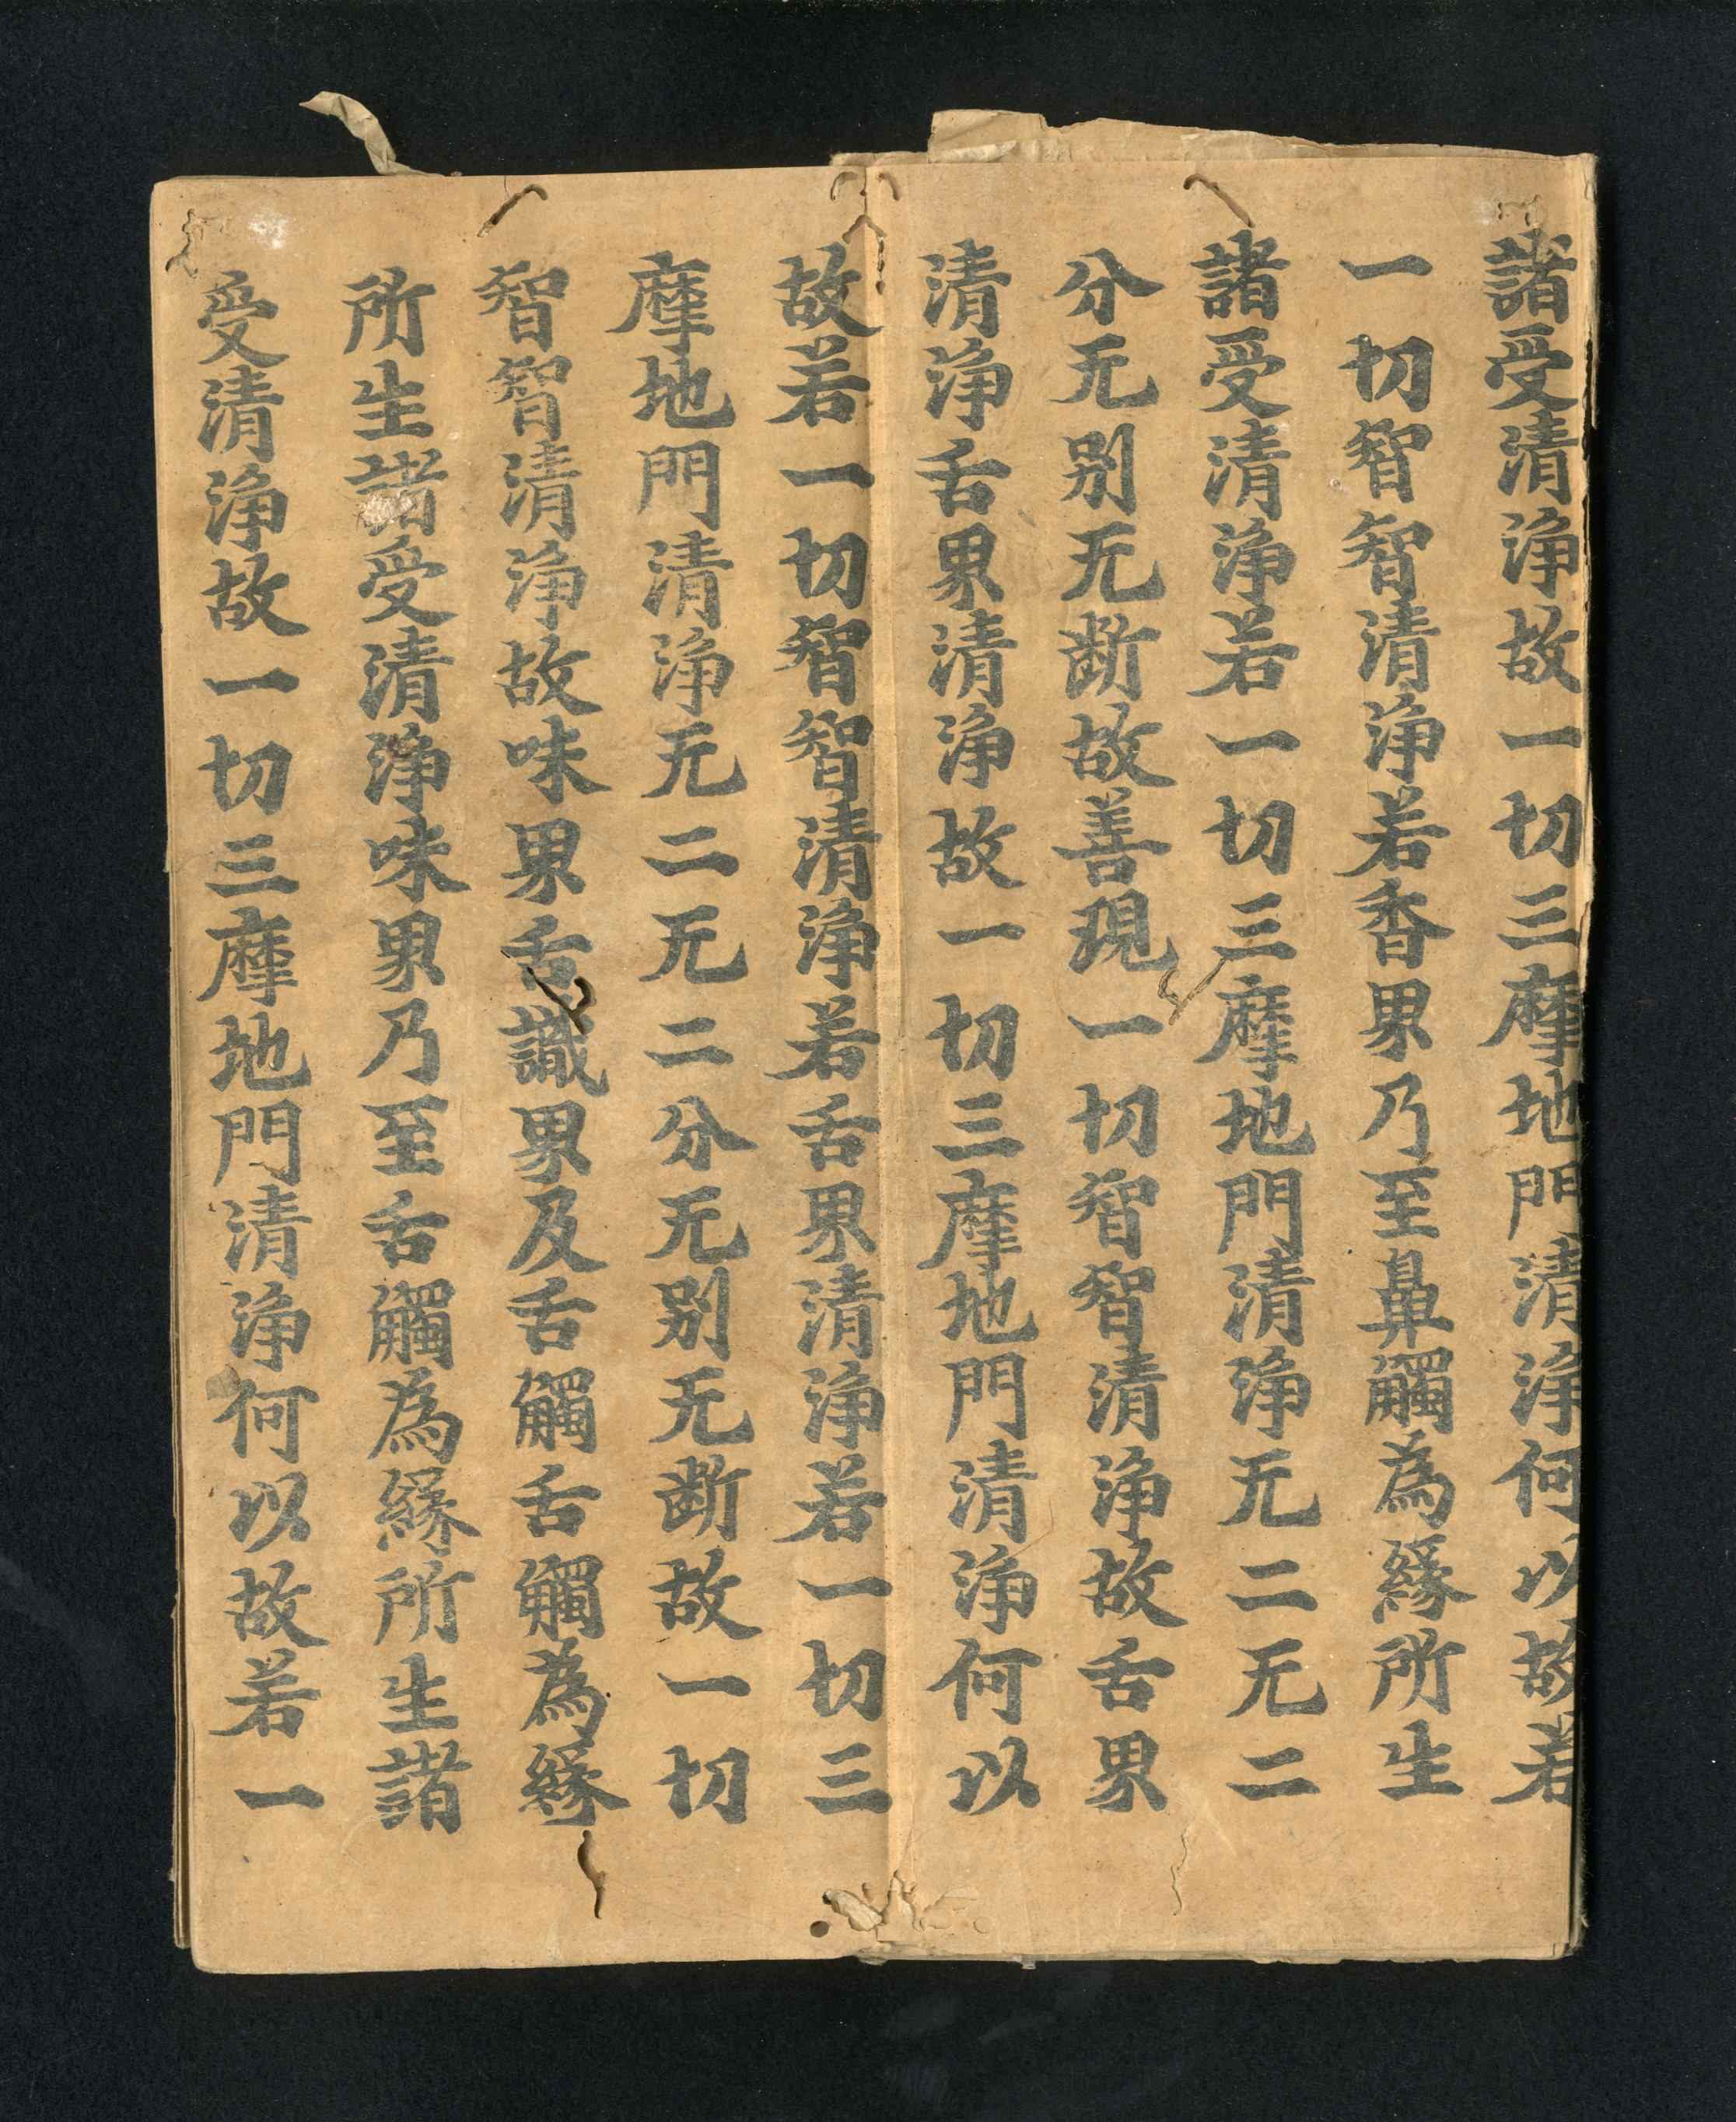 諸受清淨故一切三摩地門清淨何以故若
一切智智清淨若香界乃至鼻觸為緣所生
諸受清淨若一切三摩地門清淨无二无二
分无別无断故善現一切智智清淨故舌界
清淨舌界清淨故一切三摩地門清淨何以
故若一切智智清淨若舌界清淨若一切三
摩地門清淨无二无二分无別无断故一切
智智清淨故味界舌識界及舌觸舌觸為緣
所生諸受清淨味界乃至舌觸為緣所生諸
受清淨故一切三摩地門清淨何以故若一